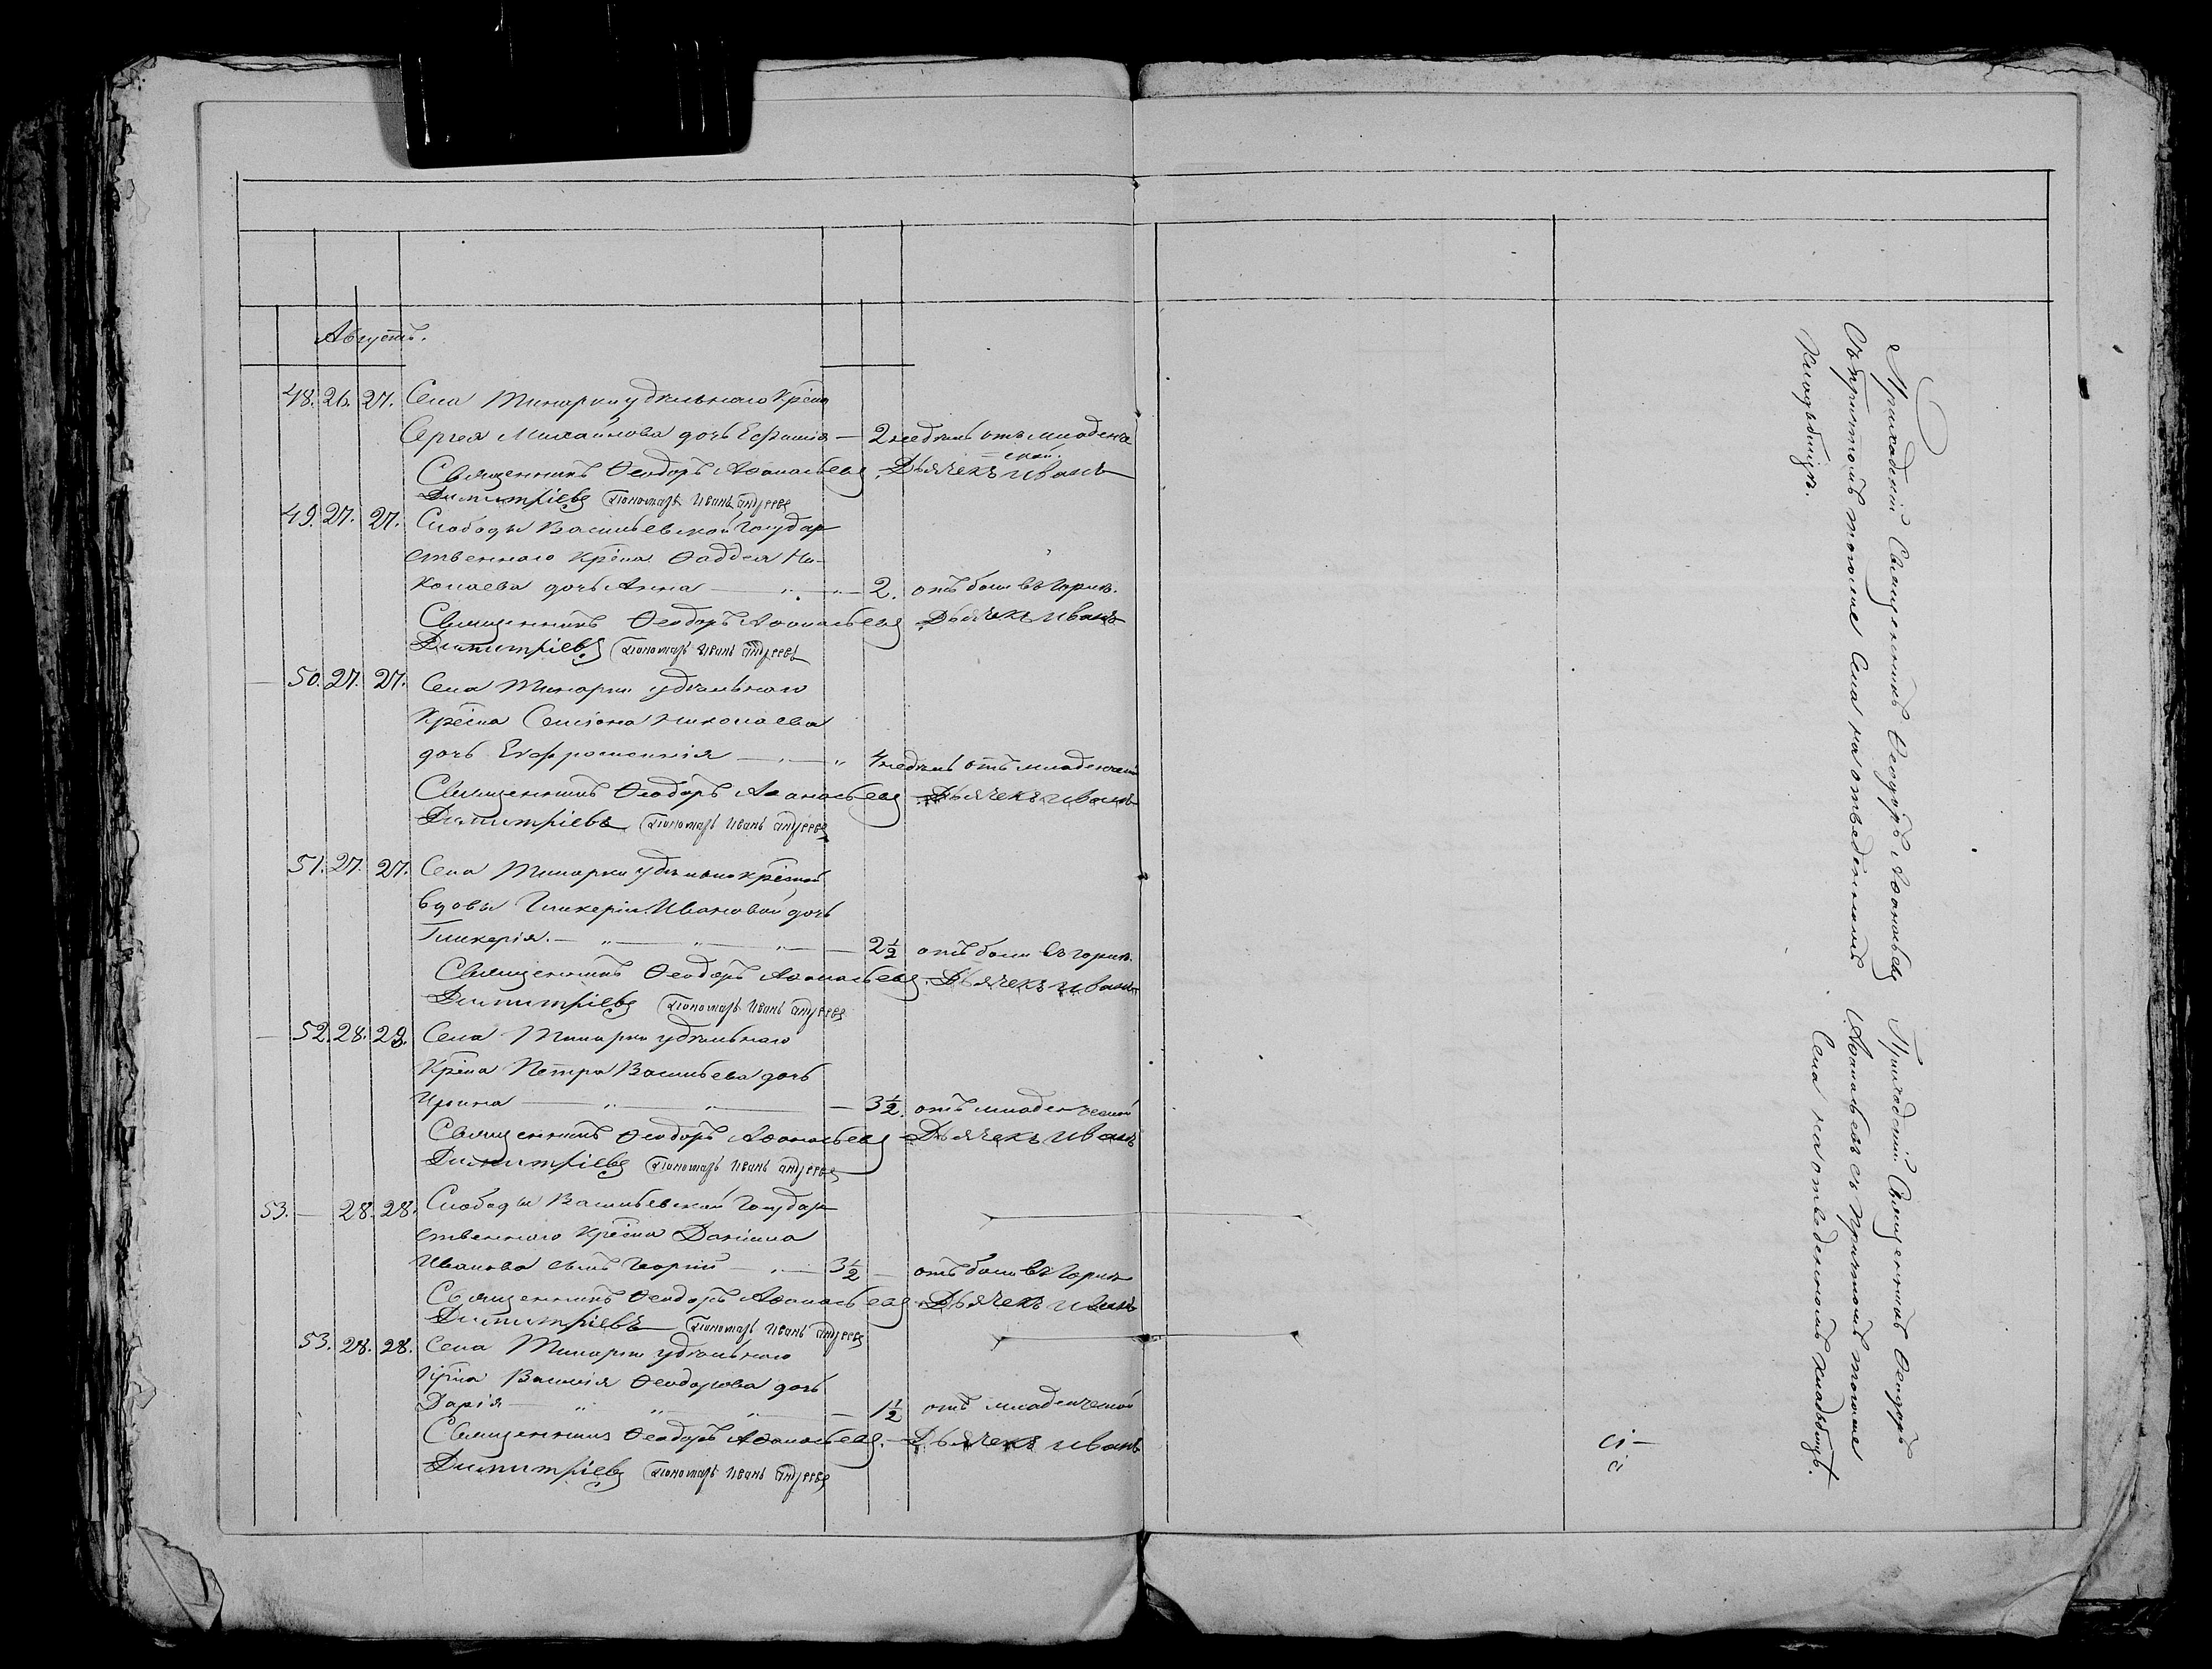 Августъ.
48. 26. 27. Села Тинарки удѣльнаго Крѣна
Сергея Михайлова дочь Евфимія — 2 недѣль отъ младенче
ской.
Священникъ Ѳеодоръ Аѳанасьевъ. Дьячекъ Иванъ
Димитріевъ Пономарь Иванъ Андреевъ
49. 27. 27. Слободы Васильевской Государ
ственнаго Крѣна Ѳаддея Ни-
колаева дочь Анна — 2. отъ боли въ горлѣ.
Священникъ Ѳеодоръ Аѳанасьевъ Дьячекъ Иванъ
Димитріевъ Пономарь Иванъ Андреевъ
50. 27. 27. Села Тинарки удѣльнаго
Крѣна Семіона Николаева
дочь Евфросиннія — " 4 недѣль отъ младенческой
Священникъ Ѳеодоръ Аѳанасьевъ Дьячекъ Иванъ
Димитріевъ Пономарь Иванъ Андреевъ
51. 27. 27. Села Тинарки удѣльно крѣной
вдовы Гликеріи Ивановой дочь
Гликерія. — 2½ отъ боли въ горлѣ.
Священникъ Ѳеодоръ Аѳанасьевъ. Дьячекъ Иванъ
Димитріевъ Пономарь Иванъ Андреевъ
52. 28. 28. Села Тинарки удѣльнаго
Крѣна Петра Васильева дочь
Ирина — 3½. отъ младенческой
Священникъ Ѳеодоръ Аѳанасьевъ Дьячекъ Иванъ
Димитріевъ Пономарь Иванъ Андреевъ
53. — 28. 28. Слободы Васильевской Государ
ственнаго Крѣна Даніила
Иванова сынъ Георгій — 3½ — отъ боли въ горлѣ
Священникъ Ѳеодоръ Аѳанасьевъ Дьячекъ Иванъ
Димитріевъ Пономарь Иванъ Андреевъ
53. 28. 28. Села Тинарки удѣльнаго
Крѣна Василія Ѳеодорова дочь
Дарія — 1½ отъ младенческой
Священникъ Ѳеодоръ Аѳанасьевъ. Дьячекъ Иванъ
Димитріевъ Пономарь Иванъ Андреевъ
Приходскій Священникъ Ѳеодоръ Аѳанасьевъ
Съ причтомъ тогоже Села на отведенномъ
Кладьбищѣ.
Приходскій Священникъ Ѳеодоръ
Аѳанасьевъ съ причтомъ тогоже
Села на отведенномъ кладьбищѣ.